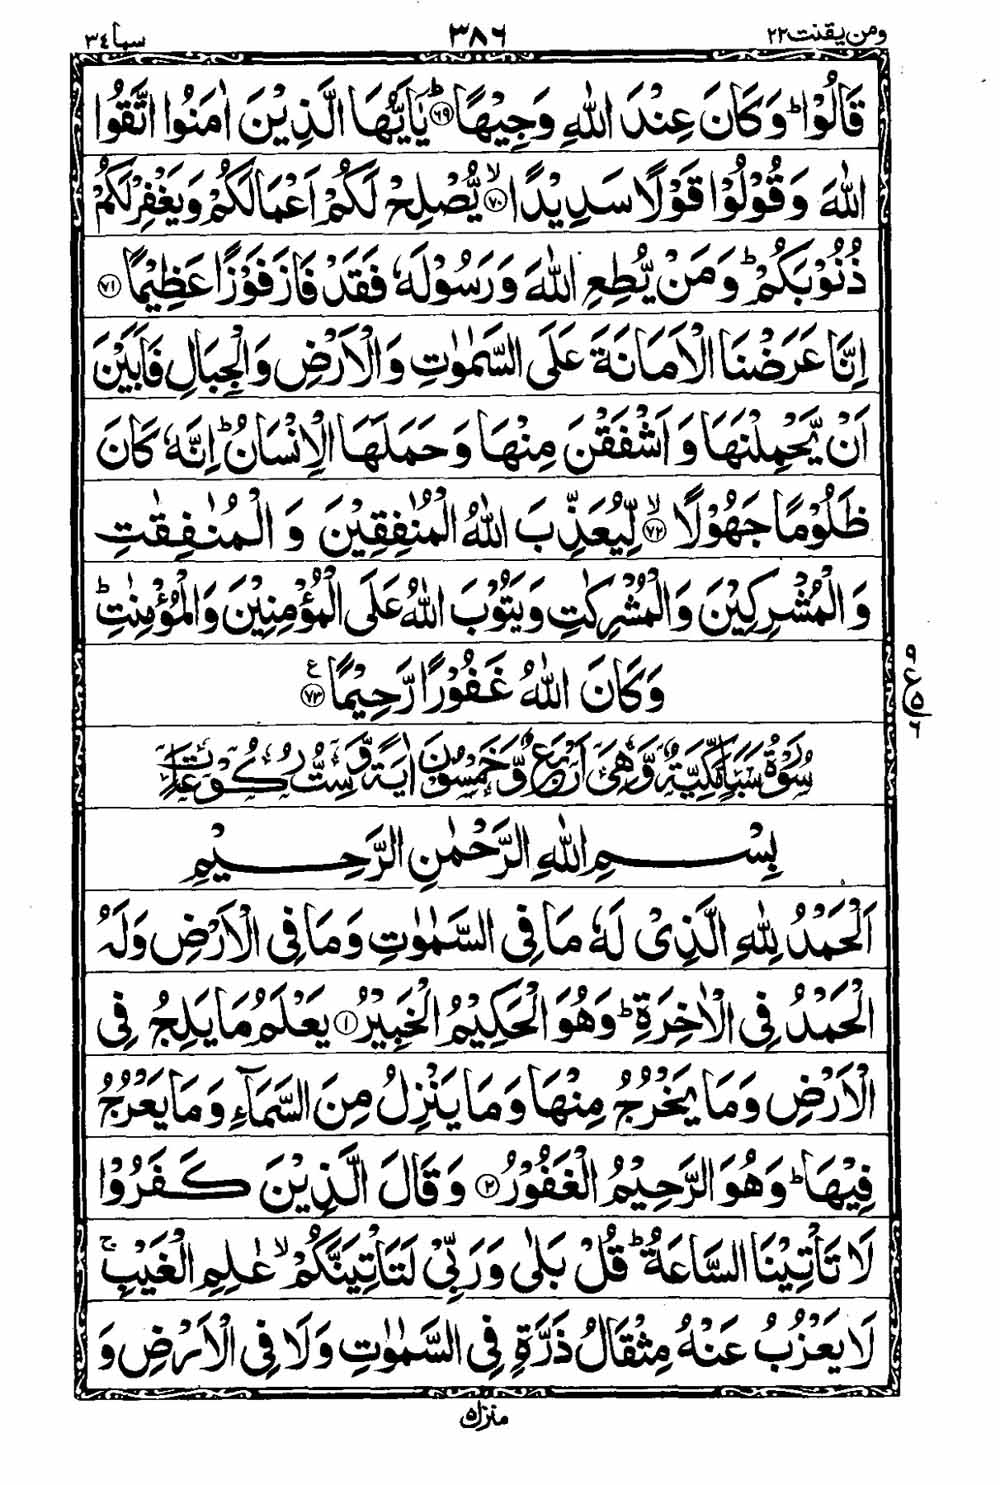 ومن يقنت ٢٢ ٣٨٦ سبا ٣٤
قَالُوْاؕ وَكَانَ عِنْدَ اللّٰهِ وَجِيْهًاؕ ۝٦٩ يٰۤاَيُّهَا الَّذِيْنَ اٰمَنُوا اتَّقُوا
اللّٰهَ وَقُوْلُوْا قَوْلًا سَدِيْدًاۙ ۝٧٠ يُّصْلِحْ لَكُمْ اَعْمَالَكُمْ وَيَغْفِرْ لَكُمْ
ذُنُوْبَكُمْؕ وَمَنْ يُّطِعِ اللّٰهَ وَرَسُوْلَهٗ فَقَدْ فَازَ فَوْزًا عَظِيْمًا ۝٧١
اِنَّا عَرَضْنَا الْاَمَانَةَ عَلَى السَّمٰوٰتِ وَالْاَرْضِ وَالْجِبَالِ فَاَبَيْنَ
اَنْ يَّحْمِلْنَهَا وَاَشْفَقْنَ مِنْهَا وَحَمَلَهَا الْاِنْسَانُؕ اِنَّهٗ كَانَ
ظَلُوْمًا جَهُوْلًاۙ ۝٧٢ لِّيُعَذِّبَ اللّٰهُ الْمُنٰفِقِيْنَ وَالْمُنٰفِقٰتِ
وَالْمُشْرِكِيْنَ وَالْمُشْرِكٰتِ وَيَتُوْبَ اللّٰهُ عَلَى الْمُؤْمِنِيْنَ وَالْمُؤْمِنٰتِؕ
وَكَانَ اللّٰهُ غَفُوْرًا رَّحِيْمًا ۝٧٣ ع
٩
ع ٥
٦
سُوْرَةُ سَبَاٍ مَّكِّيَّةٌ وَّهِيَ اَرْبَعٌ وَّخَمْسُوْنَ اٰيَةً وَّسِتُّ رُكُوْعَاتٍ
بِسْمِ اللّٰهِ الرَّحْمٰنِ الرَّحِيْمِ
اَلْحَمْدُ لِلّٰهِ الَّذِيْ لَهٗ مَا فِي السَّمٰوٰتِ وَمَا فِي الْاَرْضِ وَلَهُ
الْحَمْدُ فِي الْاٰخِرَةِؕ وَهُوَ الْحَكِيْمُ الْخَبِيْرُ ۝١ يَعْلَمُ مَا يَلِجُ فِي
الْاَرْضِ وَمَا يَخْرُجُ مِنْهَا وَمَا يَنْزِلُ مِنَ السَّمَآءِ وَمَا يَعْرُجُ
فِيْهَاؕ وَهُوَ الرَّحِيْمُ الْغَفُوْرُ ۝٢ وَقَالَ الَّذِيْنَ كَفَرُوْا
لَا تَاْتِيْنَا السَّاعَةُؕ قُلْ بَلٰى وَرَبِّيْ لَتَاْتِيَنَّكُمْۙ عٰلِمِ الْغَيْبِۚ
لَا يَعْزُبُ عَنْهُ مِثْقَالُ ذَرَّةٍ فِي السَّمٰوٰتِ وَلَا فِي الْاَرْضِ وَ
منزل ٥